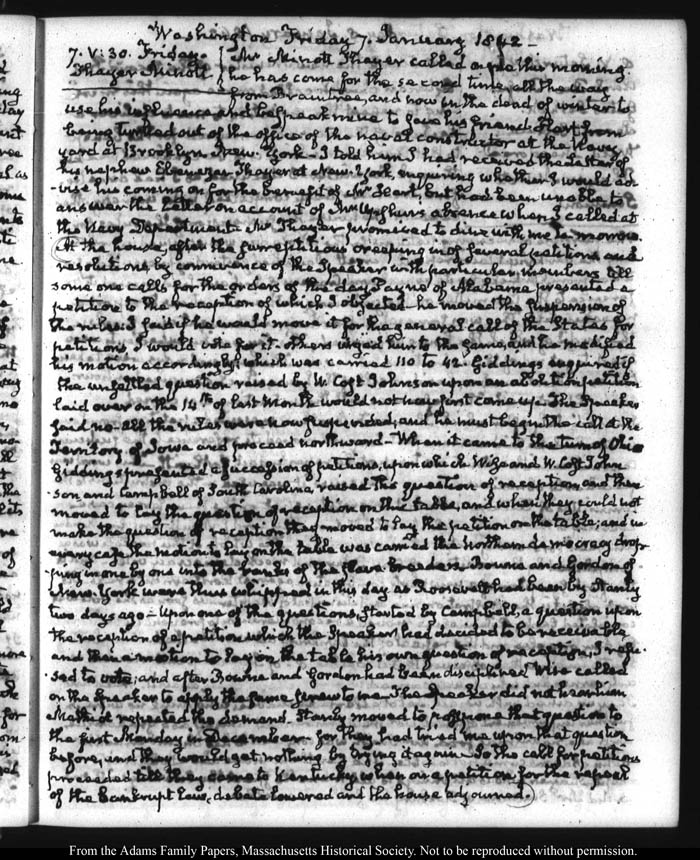 Washington Friday 7. January 1842 –
7. V:30. Friday.
Thayer Minott
Mr Minott Thayer called on me this morning.
he has come for the second time all the way
from Braintree, and now in the dead of winter to
use his influence and bespeak mine to save his friend Hart from
being turned out of the office of the naval constructor at the Navy
yard at Brooklyn New-York – I told him I had received the Letter of
his nephew Ebenezer Thayer at New-York, enquiring whether I would ad-
-vise his coming on for the benefit of Mr Hart, but had been unable to
answer the Letter on account of Mr Upshur's absence when I called at
the Navy Department. Mr Thayer promised to dine with me to-morrow.
At the house, after the surreptitious creeping in of several petitions and
resolutions by connivence of the Speaker with particular members till
some one calls for the orders of the day, Payne of Alabama presented a
petition to the reception of which I objected – he moved the suspension of
the rules: I said if he would move it for the general call of the States for
petitions I would vote for it – others urged him to the same, and he modified
his motion accordingly; which was carried 110 to 42. Giddings enquired if
the unsettled question raised by W. Cost Johnson upon an abolition petition
laid over on the 14th of last Month would not now first come up. The Speaker
said no – all the rules were now suspended, and he must begin the call at the
Territory of Iowa and proceed northward – When it came to the turn of Ohio
Giddings presented a succession of petitions, upon which Wise and W. Cost John-
son and Campbell of South Carolina, raised the question of reception and then
moved to lay the question of reception on the table, and when they could not
make the question of reception they moved to lay the petition on the table; and in
every case the motion to lay on the table was carried the northern democracy drop-
-ping in one by one into the ranks of the slave breeders. Bowne and Gordon of
New-York were thus whipped in this day as Roosevelt had been by Stanly
two days ago – Upon one of the questions, started by Campbell, a question upon
the reception of a petition which the Speaker had decided to be receivable
and then a motion to lay on the table his own question of reception, I refu-
-sed to vote; and after Bowne and Gordon had been disciplined Wise called
on the Speaker to apply the same screw to me. The Speaker did not hear him
Mathiot repeated the demand. Stanly moved to postpone that question to
the first Monday in December – for they had tried me upon that question
before, and they would get nothing by trying it again – So the call for petitions
proceeded till they came to Kentucky, when on a petition for the repeal
of the Bankrupt Law, debate lowered and the house adjourned.
From the Adams Family Papers, Massachusetts Historical Society. Not to be reproduced without permission.